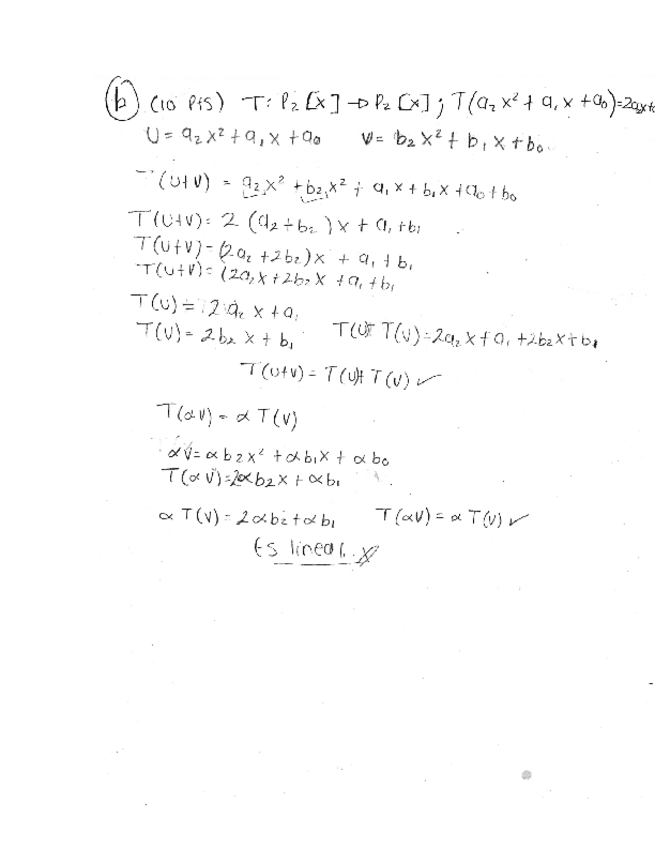 (b) (10 Pts) T: P₂[x] → P₂[x] ; T(a₂x² + a₁x + a₀)=2a₂x+
U= a₂x² + a₁x + a₀ V= b₂x² + b₁x + b₀.
T(U+V) = a₂x² + b₂x² + a₁x + b₁x + a₀ + b₀
T(U+V)= 2 (a₂+b₂)x + a₁+b₁
T(U+V)=(2a₂+2b₂)x + a₁ + b₁
T(U+V)= (2a₂x+2b₂x + a₁+b₁
T(U)= 2a₂x + a₁
T(V)= 2b₂x + b₁ T(U)+T(V)=2a₂x+a₁+2b₂x+b₁
T(U+V)= T(U)+T(V) ✓
T(αV)= αT(V)
αV= αb₂x² + αb₁x + αb₀
T(αV)=2αb₂x + αb₁
αT(V)= 2αb₂+αb₁ T(αV)= αT(V) ✓
Es lineal.